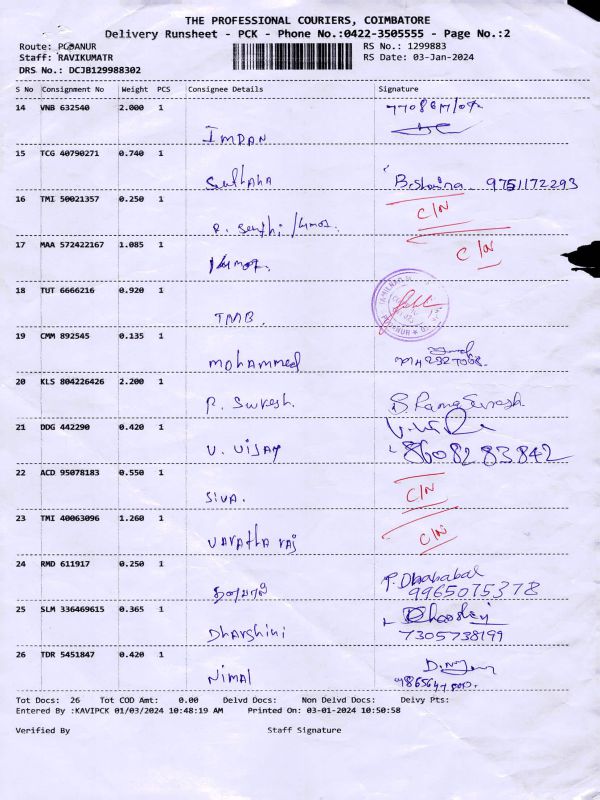 THE PROFESSIONAL COURIERS, COIMBATORE
Delivery Runsheet - PCK - Phone No.:0422-3505555 - Page No.:2
Route: POANUR
RS No.: 1299883
Staff: RAVIKUMATR
RS Date: 03-Jan-2024
DRS No.: DCJB129988302
S No Consignment No Weight PCS Consignee Details Signature
14 VNB 632540 2.000 1
IMRAN
15 TCG 40790271 0.740 1
Sulthana B.Sharina 9751172293
16 TMI 50021357 0.250 1 C/N
17 MAA 572422167 1.085 1 C/N
Kumar.
18 TUT 6666216 0.920 1
TMB.
19 CMM 892545 0.135 1
Mohammed
20 KLS 804226426 2.200 1
P. Suresh. B.Rama Suresh
21 DDG 442290 0.420 1
V. Vijay 8608283842
22 ACD 95078183 0.550 1 C/N
Siva.
23 TMI 40063096 1.260 1 C/N
Varatha raj
24 RMD 611917 0.250 1
P.Dhababal
9965075378
25 SLM 336469615 0.365 1
Dharshini 7305738199
26 TDR 5451847 0.420 1
Nimal
Tot Docs: 26 Tot COD Amt: 0.00 Delvd Docs: Non Delvd Docs: Delvy Pts:
Entered By :KAVIPCK 01/03/2024 10:48:19 AM Printed On: 03-01-2024 10:50:58
Verified By Staff Signature